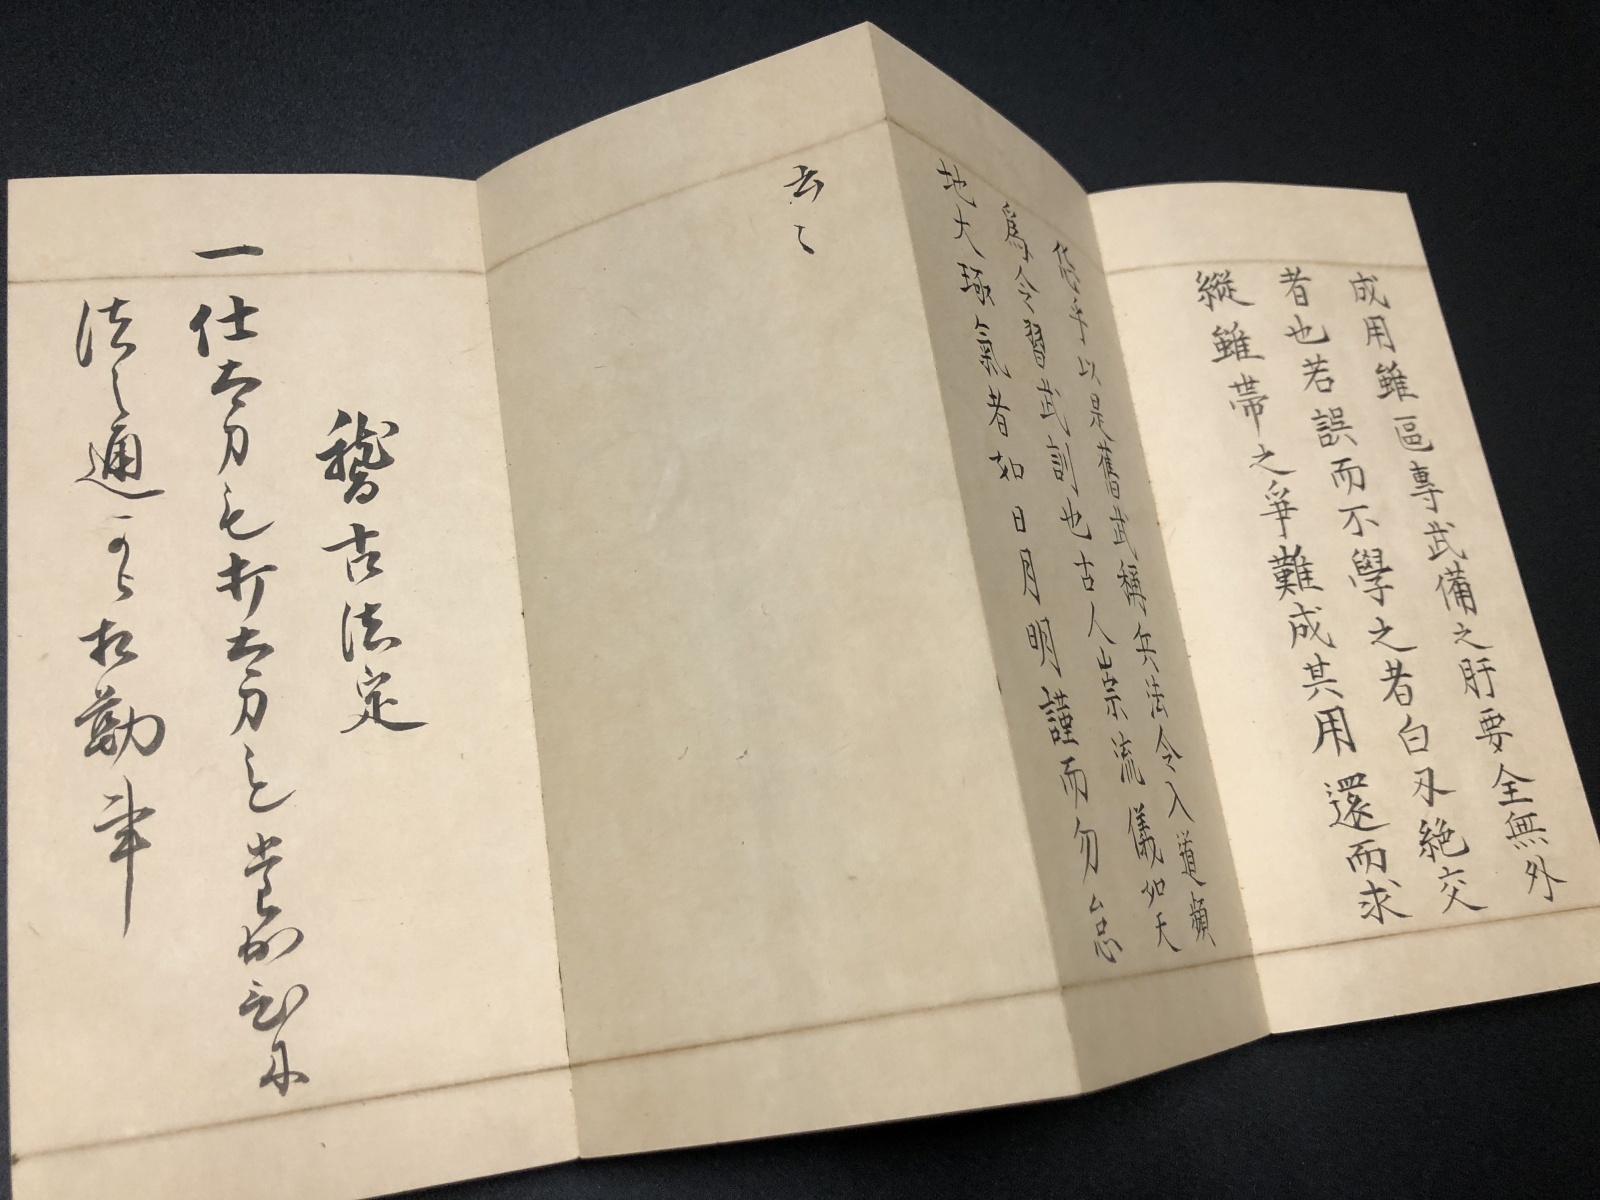 成用雖區專武備之肝要全無外
者也若誤而不學之者白刃絶交
縦雖帯之爭難成其用還而求
以是舊武稱兵法令入道頻
爲令習武訓也古人崇流儀如天
地大琢氣者如日月明謹而勿怠
云〻
稽古法定
一仕太刀も打太刀も
法之通可相勤事